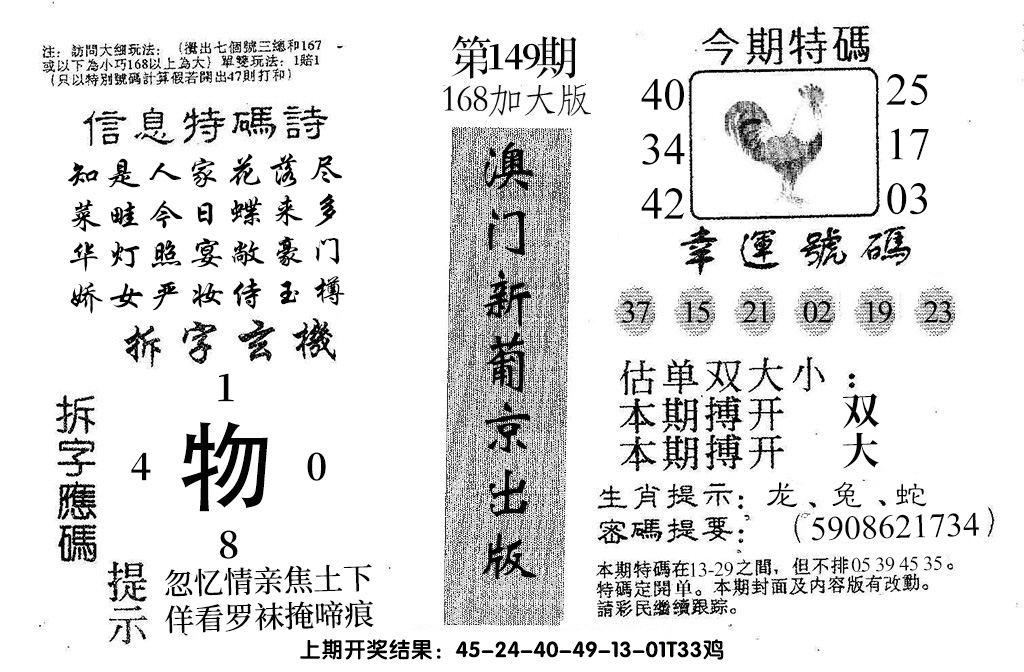 注：訪問大细玩法：（攪出七個號三總和167
或以下為小巧168以上為大）單雙玩法：1賠1
（只以特別號碼計算假若開出47則打和）
信息特碼詩
知是人家花落尽
菜畦今日蝶来多
华灯照宴敞豪门
娇女严妆侍玉樽
拆字玄機
拆字應碼
1
4 物 0
8
提示
忽忆情亲焦土下
佯看罗袜掩啼痕
第149期
168加大版
澳门新葡京出版
今期特碼
40 25
34 17
42 03
幸運號碼
37 15 21 02 19 23
估单双大小：
本期搏开 双
本期搏开 大
生肖提示：龙、兔、蛇
密碼提要：（5908621734）
本期特碼在13-29之間，但不排05 39 45 35。
特碼定開单。本期封面及内容版有改動。
請彩民繼續跟踪。
上期开奖结果：45-24-40-49-13-01T33鸡